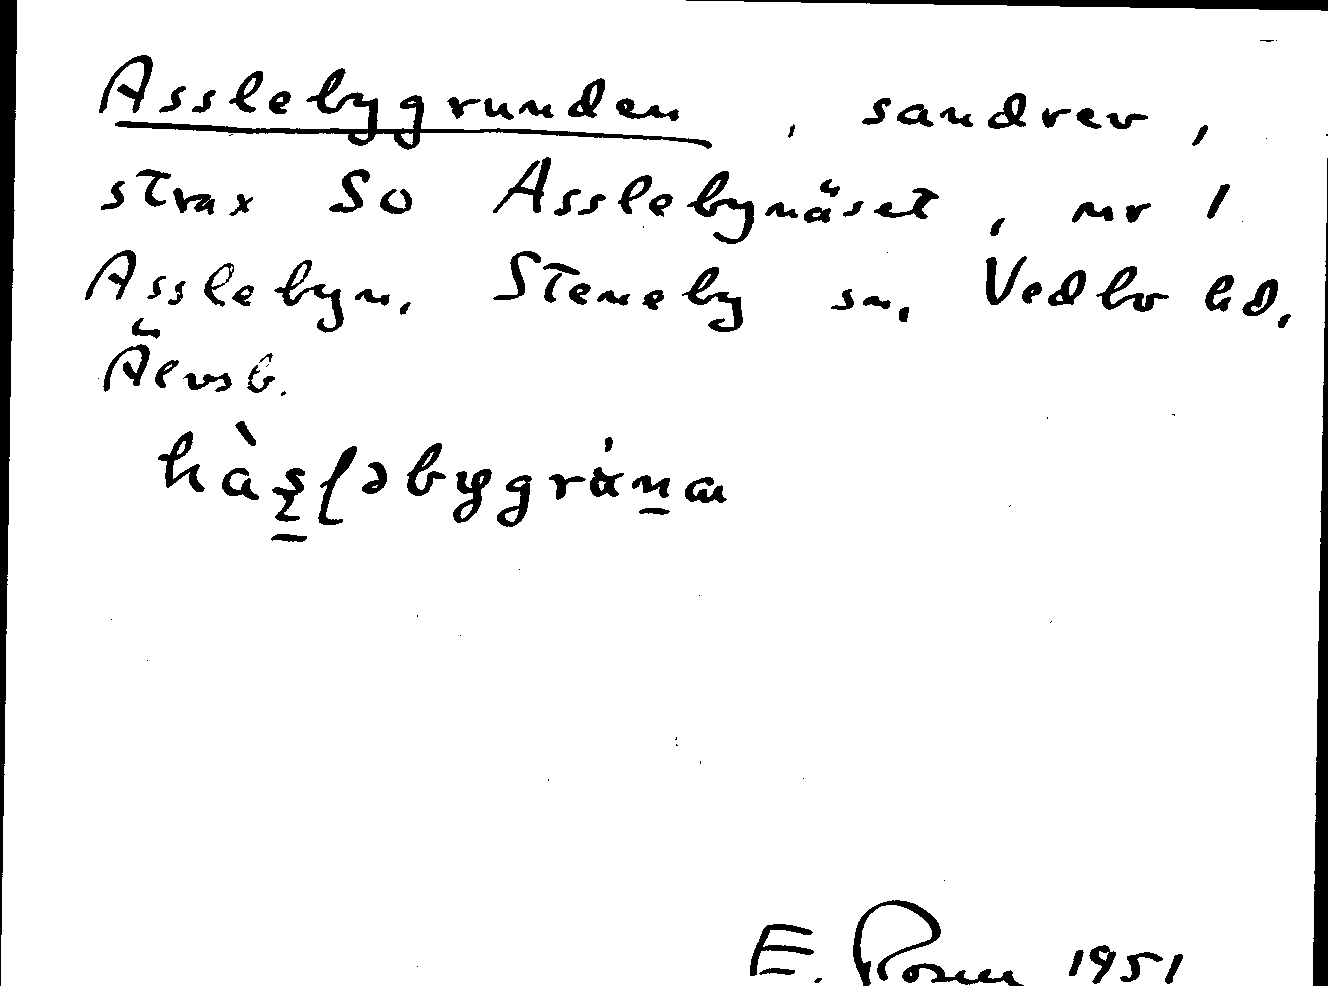 Asslebygrunden, sandrev,
strax SO Asslebynäset, nr 1
Asslebyn, Steneby sn, Vedbo hd,
Älvsb.
E. Rosen 1951